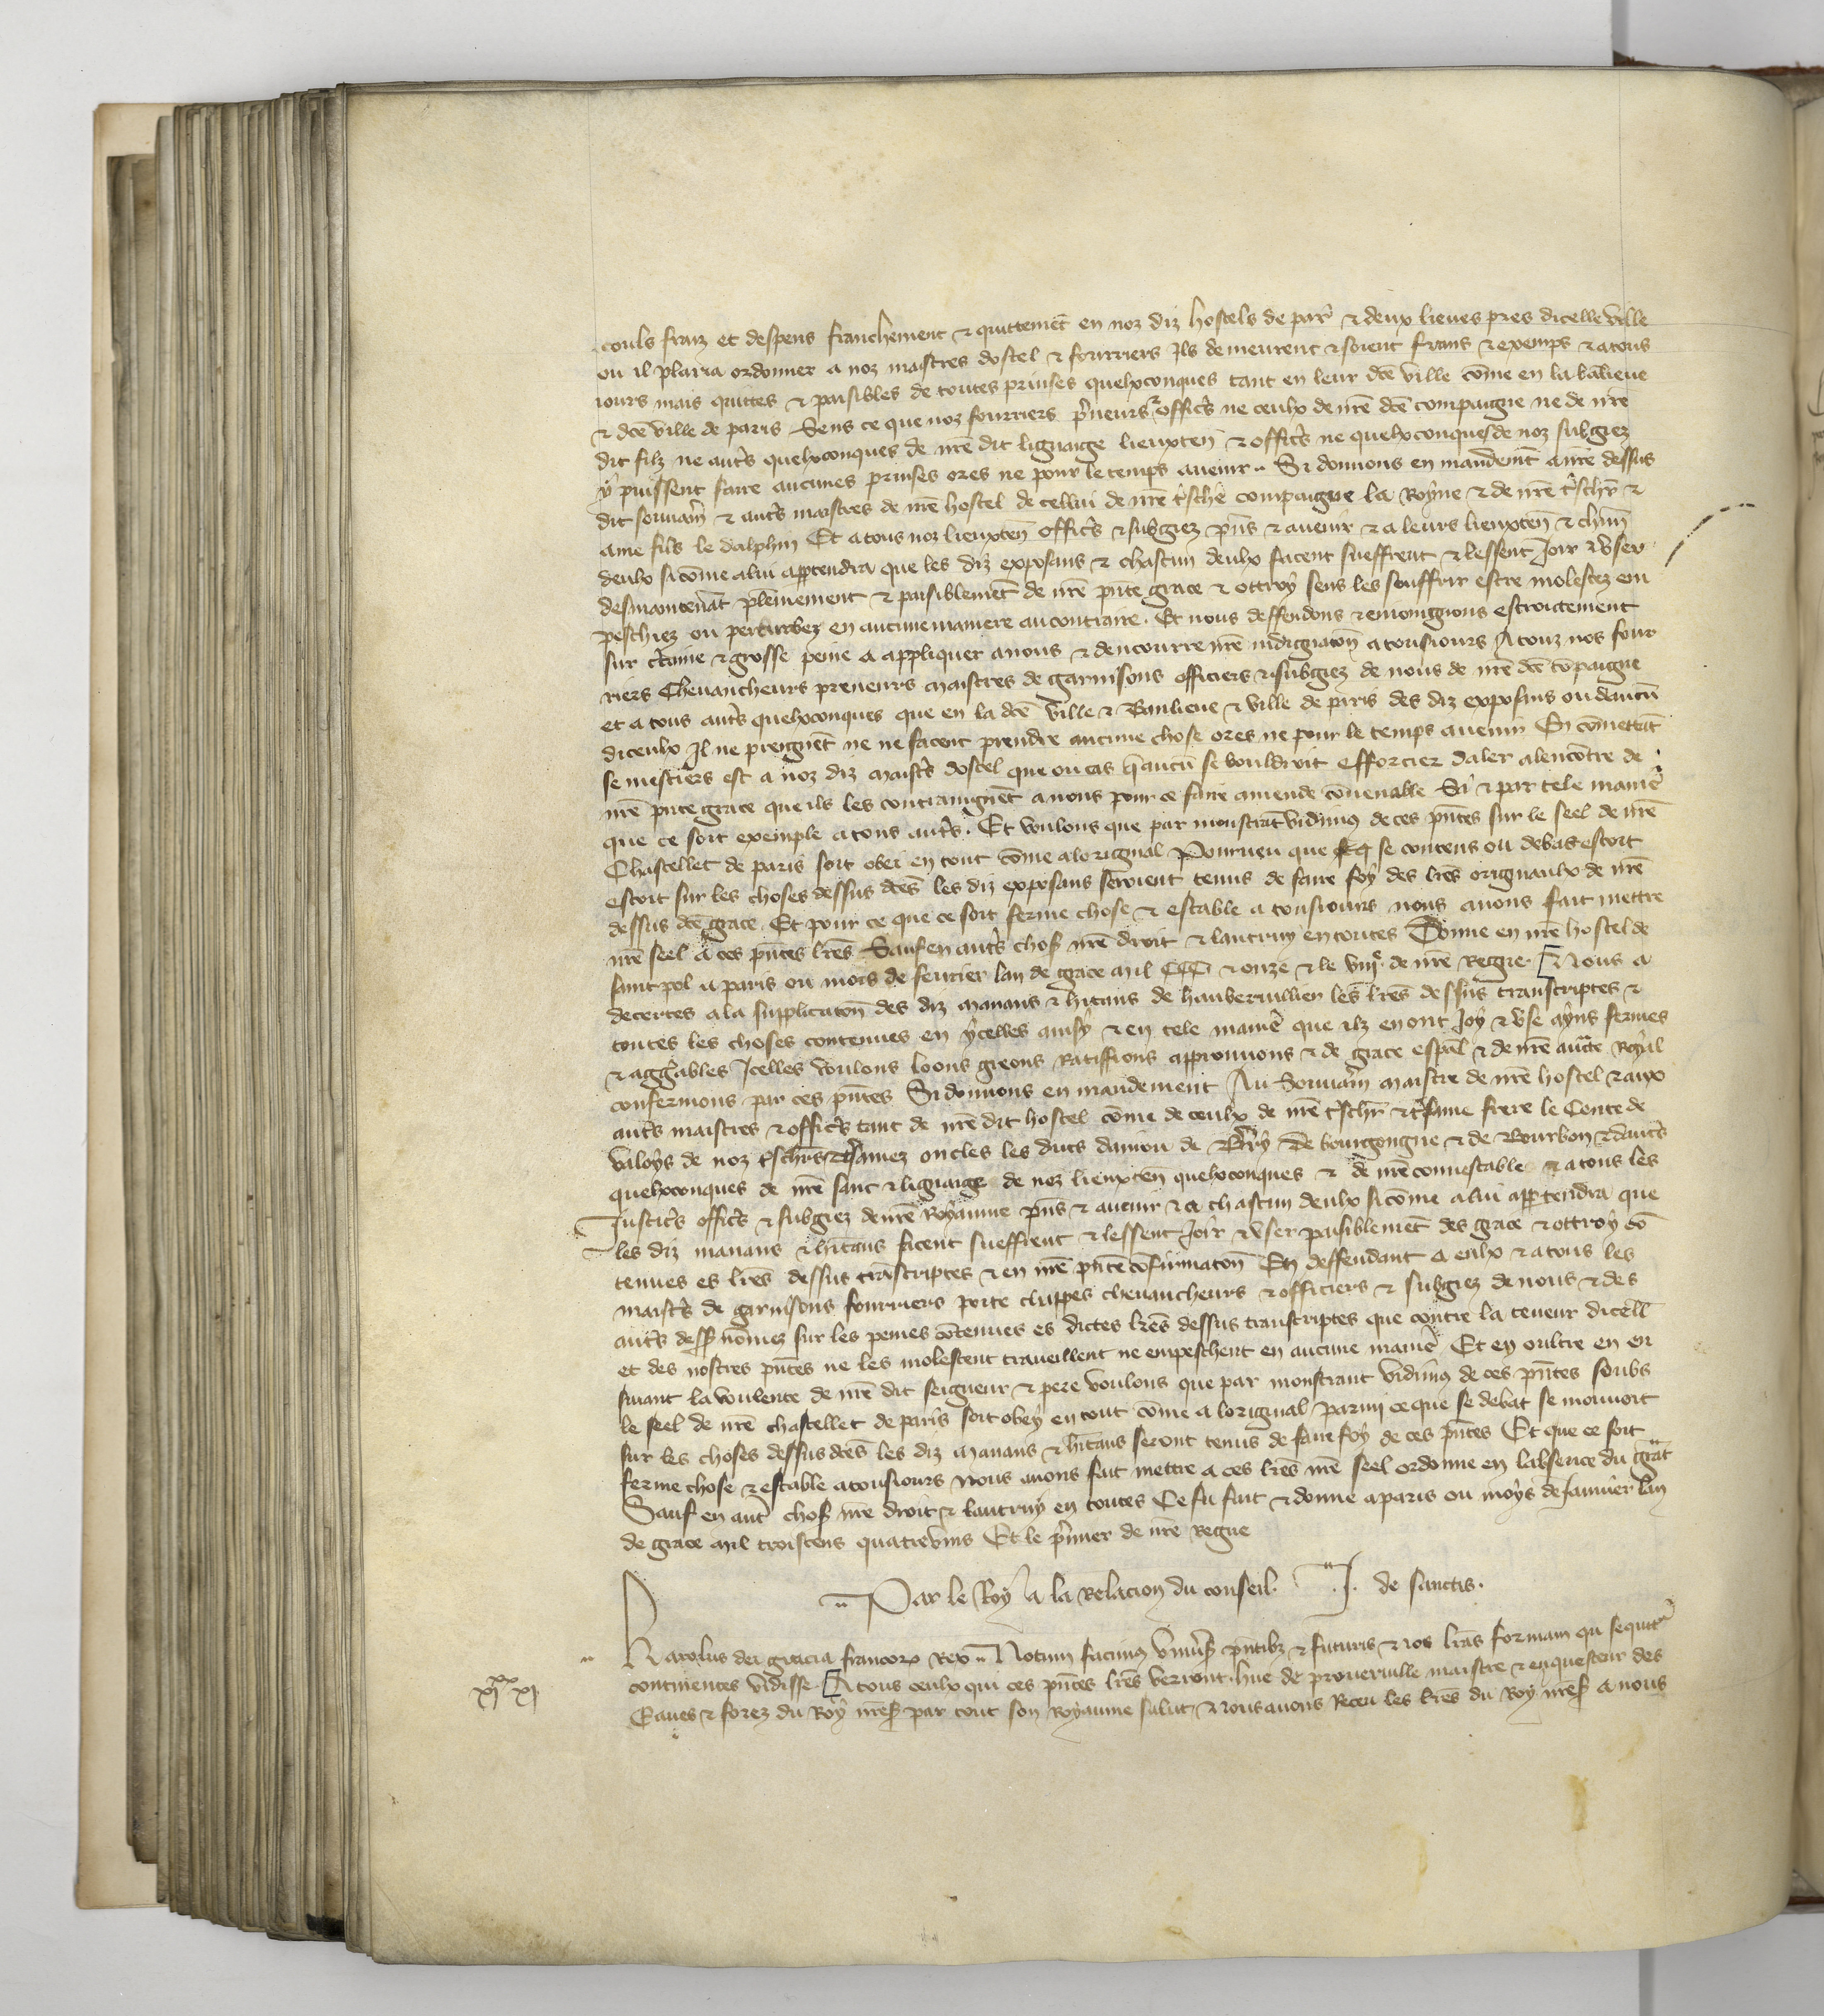 couls fraiz et despens franchement & quittemēt en noz diz hostels de par̄ & deux lieues pres dicelle ville
ou il plaira ordonner a noz maistres dostel & fourriers Ils demeurent & soient frans & exemps & a tous
iours mais quittes & paisibles de toutes prinses quelxconques tant en leur dcē ville cōme en la bālieue
& dcē ville de paris Sens ce que noz fourriers p̄neurs & offic̄rs ne ceulx de nr̄e dcē compaigne ne de nr̄e
dit filz ne aut̄s quelxconques de nr̄e dit lignaige lieuxten̄ & offic̄rs ne quelxconques de noz subgiez
y puissent faire aucunes prinses ores ne pour le temps auenir Si donnons en mandemēt a nr̄e dessus
dit souuaī & aut̄s maistres de nr̄e hostel de cellui de nr̄e t̄schē compaigne la Royne & de nr̄e t̄schr̄ &
ame fils le dalphin Et a tous noz lieuxten̄ offic̄rs & subgiez pn̄s & auenir & a leurs lieuxten̄ & chūn
deulx si cōme a lui app̄tendra que les diz exposans & chascun deulx facent sueffrent & lessent Joir & vser
desmaintenāt pleinement & paisiblemēt de nr̄e pn̄te grace & ottroy sens les souffrir estre molestez em
peschiez ou perturbez en aucune maniere au contraire. Et nous deffendons & enioingnons estroictement
sur c̄taine & grosse peine a appliquer a nous & dencourre nr̄e indignatoн̄ a tousiours A touz nos four
riers Cheuaucheurs preneurs maistres de garnisons officiers & subgiez de nous de nr̄e dcē cōpaigne
et a tous aut̄s quelxconques que en la dcē ville & Banlieue & ville de paris des diz exposans ou daucū
diceulx Il ne preignēt ne ne facent prendre aucune chose ores ne pour le temps auenir En cōmettāt
se mestiers est a noz diz maist̄s dostel que ou cas q̄ aucū se vouldroit efforcier daler alencōtre de
nr̄e pn̄te grace que ils les contraingnēt a nous pour ce faire amende cōuenable Si & par tele manie͛
que ce soit exemple a tous aut̄s. Et voulons que par monstrāt vidimus de ces pn̄tes sur le seel de nr̄e
Chastellet de paris soit obei en tout cōme a loriginal Pourueu que se contens ou debas estoit
estoit sur les choses dessus dcēs les diz exposans seroient tenus de faire foy des lr̄es originaulx de nr̄e
dessus dcē grace Et pour ce que ce soit ferme chose & estable a tousiours nous auons fait mettre
nr̄e seel a ces pn̄tes lr̄es Sauf en aut̄s chos̄ nr̄e droit & lautruy en toutes Donne en nr̄e hostel de
saint pol a paris ou mois de feurier lan de grace mil CCC & onze & le viijᵉ. de nr̄e Regne. Nous a
decertes a la supplicatoн̄ des diz manans & hītans de hauberuillien les lr̄es dessus transcriptes &
toutes les choses contenues en ycelles ainsy & en tele manie͛ que ilz en ont Joy & vse ayns fermes
& aggābles Icelles voulons loons greons Ratiffions approuuons & de grace esp̄al & de nr̄e auct̄e Royal
confermons par ces pn̄tes Si donnons en mandement Au Souuaī maistre de nr̄e hostel & aux
aut̄s maistres & offic̄rs tant de nr̄e dit hostel cōme de ceulx de nr̄e t̄schr̄ & t̄same frere le Conte de
valoys de noz t̄schr̄s & t̄samez oncles les ducs daniou de Brr̄y De bourgongne & de Bourbon & daut̄s
quelxconques de nr̄e sanc & lignaige de noz lieuxten̄ quelxconques & de nr̄e connestable & a tous les
Justic̄rs offic̄rs & subgiez de nr̄e Royaume pn̄s & auenir & a chascun deulx si cōme a lui app̄tendra que
les diz manans & hītans facent sueffrent & lessent Joir & vser paisiblemēt des grace & ottroy cō
tenues es lr̄es dessus trāscriptes & en nr̄e pn̄te cōfirmatoн̄ En deffendant a eulx & a tous les
maist̄s de garnisons fourriers porte chappes cheuaucheurs & officiers & subgiez de nous & des
aut̄s dess̄ nōmez sur les peines cōtenues es dictes lr̄es dessus transcriptes que contre la teneur dicell̄
et des nostres pn̄tes ne les molestent traueillent ne empeschent en aucune manie͛ Et en oultre en en
suiant la voulente de nr̄e dit seigneur & pere voulons que par monstrant vidimus de ces pn̄tes soubs
le seel de nr̄e chastellet de paris soit obey en tout cōme a loriginal parmi ce que se debat se mouuoit
sur les choses dessus dcēs les diz manans & hītans seront tenus de faire foy de ces pn̄tes Et que ce soit
ferme chose & estable a tousiours nous auons fait mettre a ces lr̄es nr̄e seel ordonne en labsence du grāt
Sauf en aut̄ chos̄ nr̄e droit & lautruy en toutes Ce fu fait & donne a paris ou moys de Januier lan
de grace mil troiscens quatrevins Et le p̄mier de nr̄e Regne
Par le Roy a la Relacion du conseil. J. de sanctis.
Karolus dei gracia francorꝝ Rex Notum facimus vniu͛s̄ pn̄tibꝫ & futuris nos lr̄as formam que sequit͛
continentes vidisse A tous ceulx qui ces pn̄tes lr̄es verront hue de prouerville maistre & enquesteur des
Eaues & forez du Roy nr̄es̄ par tout son Royaume salut Nous auons Receu les lr̄es du Roy nr̄es̄ a nous